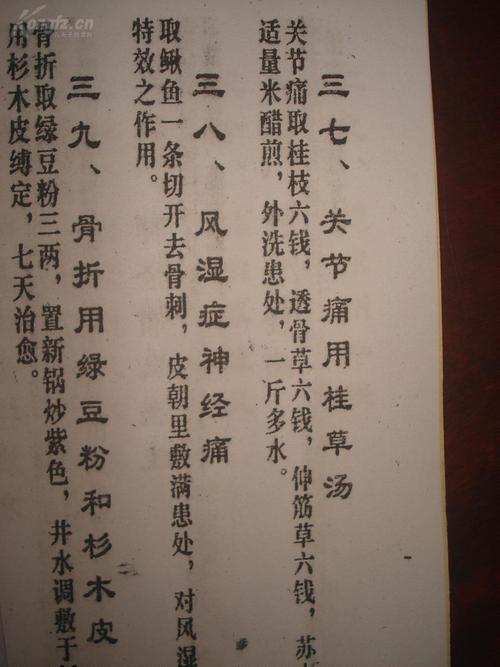 三七、关节痛用桂草汤
关节痛取桂枝六钱，透骨草六钱，伸筋草六钱，苏
适量米醋煎，外洗患处，一斤多水。
三八、风湿症神经痛
取鳅鱼一条切开去骨刺，皮朝里敷满患处，对风湿
特效之作用。
三九、骨折用绿豆粉和杉木皮
骨折取绿豆粉三两，置新锅炒紫色，井水调敷于
用杉木皮缚定，七天治愈。